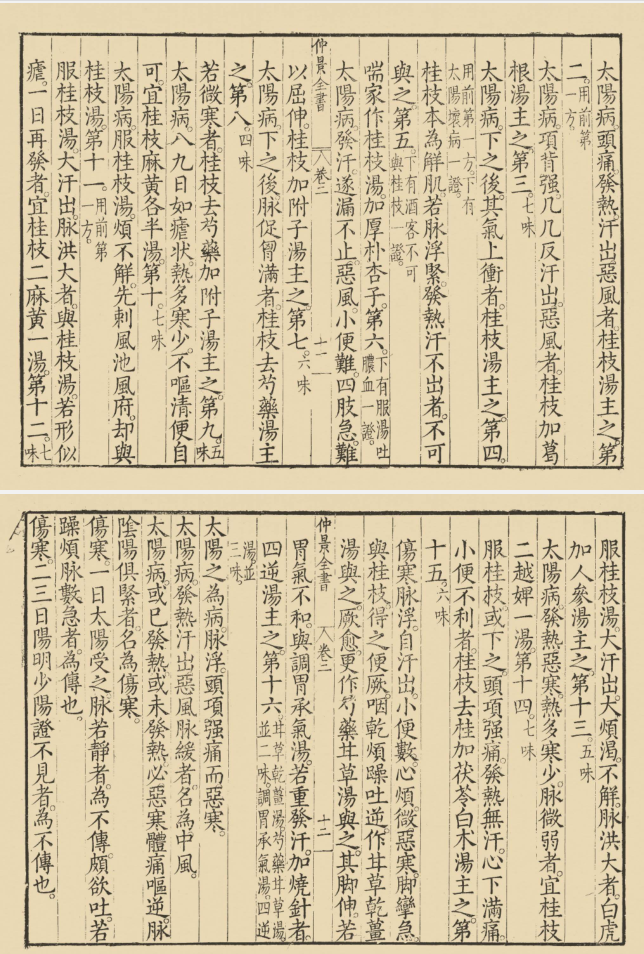 太陽病。頭痛。發熱。汗出。惡風者。桂枝湯主之。第
二。用前第一方。
太陽病。項背强几几。反汗出。惡風者。桂枝加葛
根湯主之。第三。七味
太陽病。下之後。其氣上衝者。桂枝湯主之。第四。
用前第一方。下有太陽壞病一證。
桂枝本為解肌。若脉浮緊。發熱汗不出者。不可
與之。第五。下有酒客不可與桂枝一證。
喘家作桂枝湯。加厚朴杏子。第六。下有服湯吐膿血一證。
太陽病。發汗。遂漏不止。惡風。小便難。四肢急。難
以屈伸。桂枝加附子湯主之。第七。六味
太陽病。下之後。脉促胷滿者。桂枝去芍藥湯主
之。第八。四味
若微寒者。桂枝去芍藥加附子湯主之。第九。五味
太陽病。八九日如瘧狀。熱多寒少。不嘔。清便自
可。宜桂枝麻黄各半湯。第十。七味
太陽病。服桂枝湯。煩不解。先刺風池風府。却與
桂枝湯。第十一。用前第一方。
服桂枝湯。大汗出。脉洪大者。與桂枝湯。若形似
瘧。一日再發者。宜桂枝二麻黄一湯。第十二。七味
仲景全書 卷二 十一
服桂枝湯。大汗出。大煩渴。不解。脉洪大者。白虎
加人參湯主之。第十三。五味
太陽病。發熱惡寒。熱多寒少。脉微弱者。宜桂枝
二越婢一湯。第十四。七味
服桂枝。或下之。頭項强痛。發熱無汗。心下滿痛。
小便不利者。桂枝去桂加茯苓白术湯主之。第
十五。六味
傷寒脉浮。自汗出。小便數。心煩。微惡寒。脚攣急。
與桂枝。得之便厥。咽乾。煩躁吐逆。作甘草乾薑
湯與之。厥愈。更作芍藥甘草湯與之。其脚伸。若
胃氣不和。與調胃承氣湯。若重發汗。加燒針者。
四逆湯主之。第十六。甘草乾薑湯。芍藥甘草湯。並二味。調胃承氣湯。四逆湯。並三味。
太陽之為病。脉浮。頭項强痛而惡寒。
太陽病。發熱汗出。惡風脉緩者。名為中風。
太陽病。或已發熱。或未發熱。必惡寒體痛嘔逆。脉
陰陽俱緊者。名為傷寒。
傷寒一日。太陽受之。脉若靜者。為不傳。頗欲吐。若
躁煩。脉數急者。為傳也。
傷寒二三日。陽明少陽證不見者。為不傳也。
仲景全書 卷二 十二